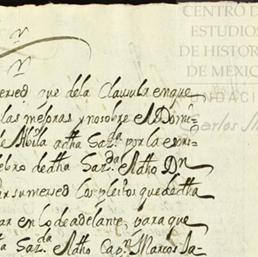 CENTRO DE
ESTUDIOS
DE HISTORIA
DE MEXICO
FUNDACIÓN
Carlos Slim
que dela Clausula enque
las mejoras y nosobre el Domi-
de Abila adha Saz.da por la escri-
ebro de dha Saz.da Aldho Dn
sumersed los pleitos quededha
ar en lo de adelante, para que
ha Saz.da Aldho Cap.n Marcos Ja-